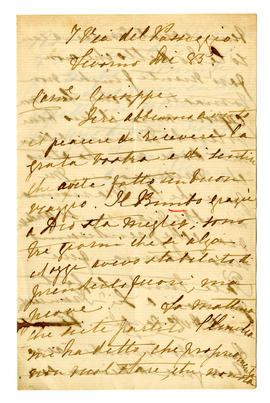 7 Via del Passeggio
Livorno Dic 23.
Carmo Giuseppe
Ieri abbiamo avuto
il piacere di ricevere la
grata vostra e di sentire
che avete fatto un buon
viaggio. Il Bimbo grazie
a Dio sta meglio, sono
tre giorni che si alza
ed oggi avevo stabilito di
mandarlo fuori, ma
piove. La mattina
che siete partiti
mi ha detto, che proprio
non vuol stare, che non